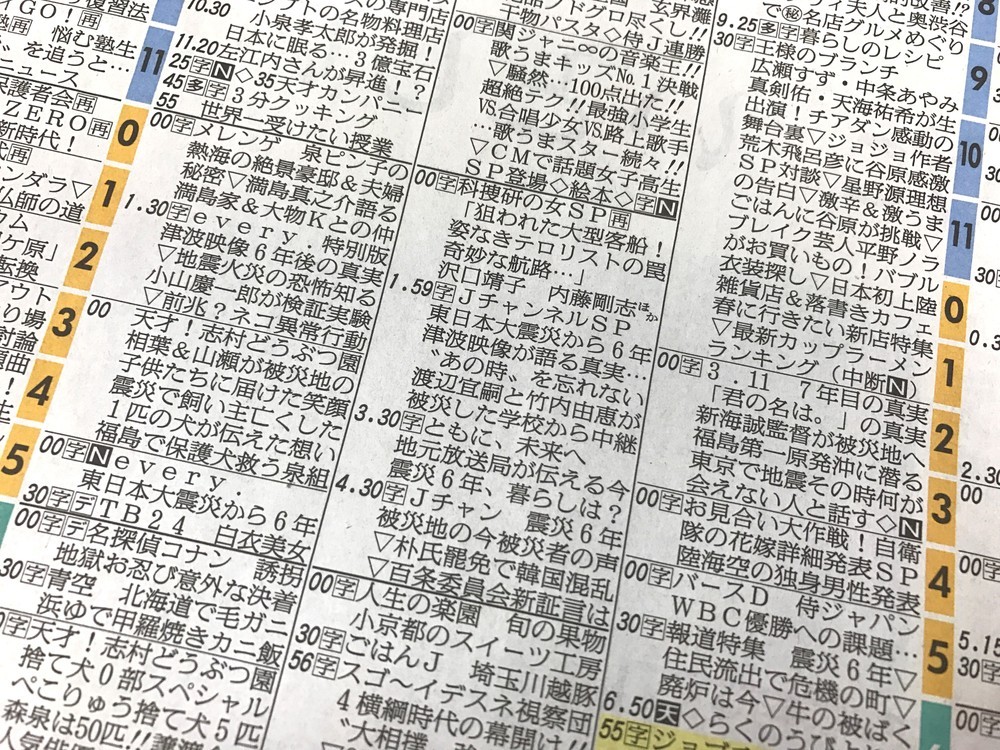 復習ゴ
GO！
悩む塾生
〝を追う…
ニュース
保護者会再
ZERO再
新時代！
11
0
1
2
3
4
5
10.30
日本に眠る…3億宝石？
11.20 左江内さんが昇進！
25字N◇35天才カンパニー
45多字3分クッキング
55 世界一受けたい授業
00字メレンゲ 泉ピン子の
熱海の絶景豪邸＆夫婦
秘密▽満島真之介語る
満島家＆大物Kとの仲
1.30字every.特別版
津波映像6年後の真実
▽地震火災の恐怖知る
小山慶一郎が検証実験
▽前兆？ネコ異常行動
00 天才！志村どうぶつ園
相葉＆山瀬が被災地の
子供たちに届けた笑顔
震災で飼い主亡くした
1匹の犬が伝えた想い
福島で保護犬救う泉組
00字Nevery.
東日本大震災から6年
30字デTB24 白衣美女
00字デ名探偵コナン 誘拐
地獄お忍び意外な決着
30字青空 北海道で毛ガニ
浜ゆで甲羅焼きカニ飯
字天才！志村どうぶつ園
捨て犬0部スペシャル
ぺこりゅう捨て犬5匹
森泉は50匹!!
00字関ジャニ∞の音楽王!!
歌うまキッズNo.1決戦
▽騒然…100点出た!!
超絶テク!!最強小学生
VS合唱少女VS路上歌手
…歌うまスター続々!!
▽CMで話題女子高生
SP登場◇絵本◇字N
00字科捜研の女SP再
「狙われた大型客船！
姿なきテロリストの罠
奇妙な航路…」
沢口靖子 内藤剛志ほか
1.59字JチャンネルSP
東日本大震災から6年
津波映像が語る真実…
〝あの時〟を忘れない
渡辺宜嗣と竹内由恵が
被災した学校から中継
3.30字ともに、未来へ
地元放送局が伝える今
震災6年、暮らしは？
4.30字Jチャン 震災6年
被災地の今被災者の声
▽朴氏罷免で韓国混乱
▽百条委員会新証言は
00字人生の楽園 旬の果物
小京都のスイーツ工房
30字ごはんJ 埼玉川越豚
56字スゴ〜イデスネ視察団
4横綱時代の幕開け!!
9.25多字暮らしのレシピ
30字王様のブランチ
広瀬すず・中条あやみ
真剣佑・天海祐希が生
出演！チアダン感動の
舞台裏▽ジョジョ作者
荒木飛呂彦に谷原感激
SP対談▽星野源理想
の告白▽激辛＆激うま
ごはんに谷原が挑戦▽
ブレイク芸人平野ノラ
がお買いもの！バブル
衣装探し▽日本初上陸
雑貨店＆落書きカフェ
春に行きたい新店特集
▽最新カップラーメン
ランキング（中断N）
00字3.11 7年目の真実
「君の名は。」の
新海誠監督が被災地へ
福島第一原発沖に潜る
東京で地震その時何が
会えない人と話す◇N
00字お見合い大作戦！自衛
隊の花嫁詳細発表SP
陸海空の独身男性発表
00字バースD 侍ジャパン
WBC優勝への課題…
30字報道特集 震災6年▽
住民流出で危機の町▽
廃炉は今▽牛の被ばく
6.50天◇らくのうひ
55字ジョブチ
8
9
10
11
0
1
2
3
4
5
2.30
00
5.15
30字